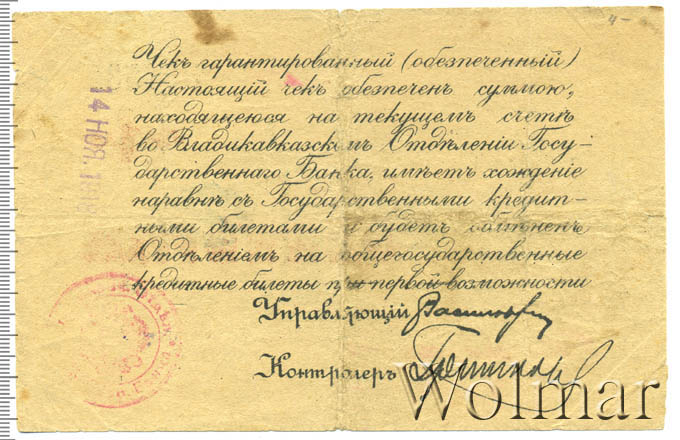 Чекъ гарантированный (обезпеченный)
Настоящій чекъ обезпеченъ суммою,
находящеюся на текущемъ счетѣ
во Владикавказскомъ Отдѣленіи Госу-
дарственнаго Банка, имѣетъ хожденіе
наравнѣ съ Государственными кредит-
ными билетами и будетъ обмѣненъ
Отдѣленіемъ на общегосударственные
кредитные билеты при первой возможности
Управляющій
Контролеръ
14 НОЯ. 1
4-
Wolmar